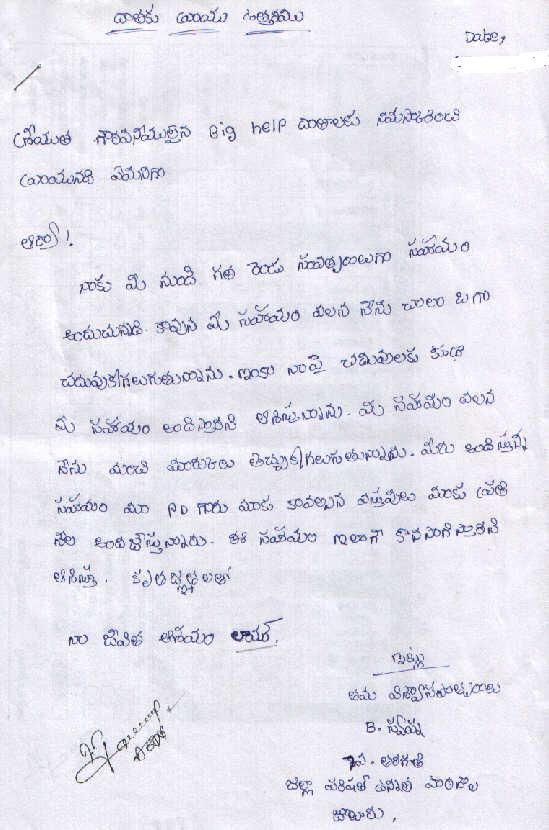 దాతకు వ్రాయు ఉత్తరము
Date,
శ్రీయుత గౌరవనీయులైన Big help దాతలకు నమస్కరించి
వ్రాయునది ఏమనగా
ఆర్యా!
నాకు మీ నుండి గత రెండు సంవత్సరాలుగా సహాయం
అందుచున్నది. కావున మీ సహాయం వలన నేను చాలా బాగా
చదువుకోగలుగుతున్నాను. ఇంకా నా పై చదువులకు కూడా
మీ సహాయం అందిస్తారని ఆశిస్తున్నాను. మీ సహాయం వలన
నేను మంచి మార్కులు తెచ్చుకోగలుగుతున్నాను. మీరు అందిస్తున్న
సహాయం మా PD గారు మాకు కావలసిన వస్తువులు మాకు ప్రతి
నెల అందచేస్తున్నారు. ఈ సహాయం ఇలాగే కొనసాగిస్తారని
ఆశిస్తూ. కృతజ్ఞతలతో
నా జీవిత ఆశయం లాయర్.
ఇట్లు
తమ విశ్వాసపాత్రురాలు
B. స్వప్న
7వ. తరగతి
జిల్లా పరిషత్ ఉన్నత పాఠశాల